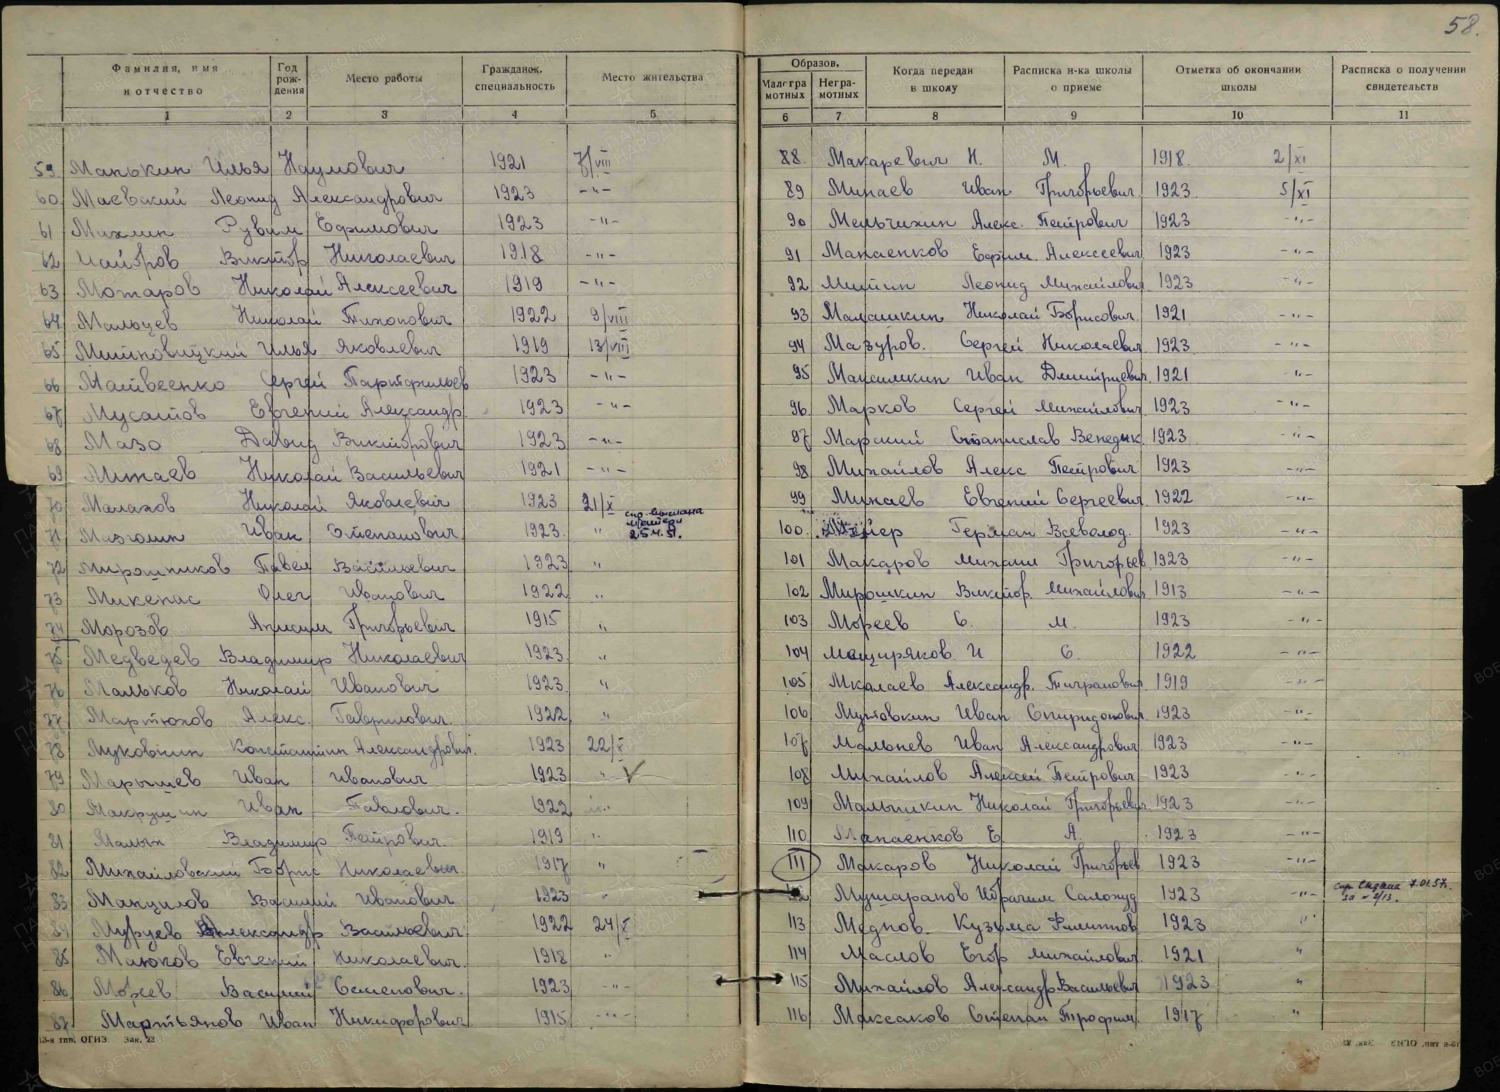 58.
Фамилия, имя и отчество | Год рождения | Место работы | Гражданск. специальность | Место жительства
1 | 2 | 3 | 4 | 5
59. Манькин Илья Наумович 1921 7/VIII
60 Маевский Леонид Александрович 1923 -"-
61 Михлин Рувим Ефимович 1923 -"-
62 Виктор Николаевич 1918 -"-
63 Мотаров Николай Алексеевич 1919 -"-
64 Мальцев Николай Тихонович 1922 9/VIII
65 Илья Яковлевич 1919 13/VIII
66 Матвеенко Сергей Партфильев 1923 -"-
67 Мусатов Евгений Александр. 1923 -"-
68 Мазо Давид Викторович 1923 -"-
69 Минаев Николай Васильевич 1921 -"-
70 Малахов Николай Яковлевич 1923 21/X
71 Иван Степанович 1923. "
72 Мирошников Павел Васильевич 1923 "
73 Микенис Олег Иванович 1922 "
74 Морозов Анисим Григорьевич 1915 "
75 Медведев Владимир Николаевич 1923 "
76 Мальков Николай Иванович 1923. "
77 Мартюхов Алекс. Гаврилович. 1922 "
78 Муковнин Константин Александрович. 1923 22/X
79 Марышев Иван Иванович 1923 " ✓
80 Макрушин Иван Павлович. 1922 "
81 Малых Владимир Петрович. 1919 "
82 Михайловский Борис Николаевич 1917 "
83 Манцилов Василий Иванович 1923 "
84 Муруев Александр Васильевич. 1922 24/X
85 Маюков Евгений Николаевич. 1918 "
86 Мореев Василий Семенович. 1923 -"-
87 Мартьянов Иван Никифорович 1915 -"-
13-я тип. ОГИЗ Зак. 22
Образов. | Когда передан в школу | Расписка н-ка школы о приеме | Отметка об окончании школы | Расписка о получении свидетельств
Малограмотных | Неграмотных
6 | 7 | 8 | 9 | 10 | 11
88. Макаревич Н. М. 1918 2/XI
89 Минаев Иван Григорьевич. 1923 5/XI
90 Мельчихин Алекс. Петрович 1923 -"-
91 Манаенков Ефим. Алексеевич 1923 -"-
92 Митин Леонид Михайлович 1923 -"-
93 Малашкин Николай Борисович. 1921 -"-
94 Мазуров. Сергей Николаевич 1923 -"-
95 Иван Дмитриевич 1921 -"-
96 Марков Сергей Михайлович 1923 -"-
97 Марский Станислав Венедик. 1923 -"-
98 Михайлов Алекс Петрович 1923 -"-
99 Минаев Евгений Сергеевич 1922 -"-
100. Герман Всеволод. 1923 -"-
101 Макаров Михаил Григорьев 1923 -"-
102 Мирошкин Виктор. Михайлович 1913 -"-
103 Мореев С. М. 1923 -"-
104 Мещиряков И С. 1922 -"-
105 Александр. Тигранович 1919 -"-
106 Мутовкин Иван Спиридонович 1923 -"-
107 Иван Александрович 1923 -"-
108 Михайлов Алексей Петрович 1923 -"-
109 Малышкин Николай Григорьевич 1923 -"-
110 Манаенков Е. А. 1923 -"-
111 Макаров Николай Григорьев 1923 -"-
112 Ибрагим 1923 -"-
113 Меднов. Кузьма Филиппов 1923 "
114 Маслов Егор Михайлович 1921 "
115 Михайлов Александр Васильевич 1923 "
116 Максаков Степан Трофим. 1917 "